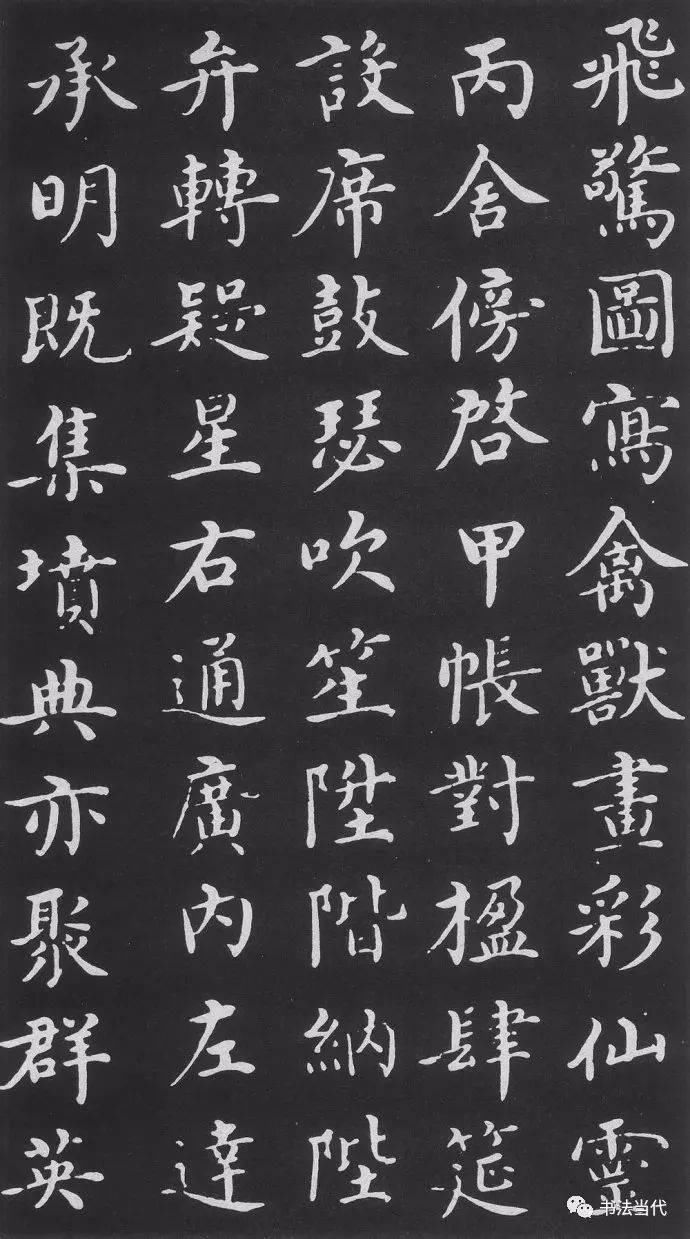 飛驚圖寫禽獸畫彩仙靈
丙舍傍啓甲帳對楹肆筵
設席鼓瑟吹笙陞階納陛
弁轉疑星右通廣內左達
承明既集墳典亦聚群英
书法当代